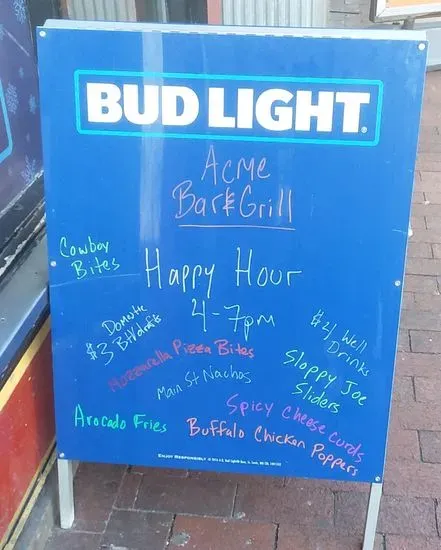 BUD LIGHT
Acme
Bar & Grill
Cowboy
Bites
Happy Hour
4-7pm
Domestic
$3 Btl/drafts
$4 Well
Drinks
Mozzarella Pizza Bites
Main St Nachos
Sloppy Joe
Sliders
Spicy cheese curds
Avocado Fries
Buffalo Chicken Poppers
ENJOY RESPONSIBLY